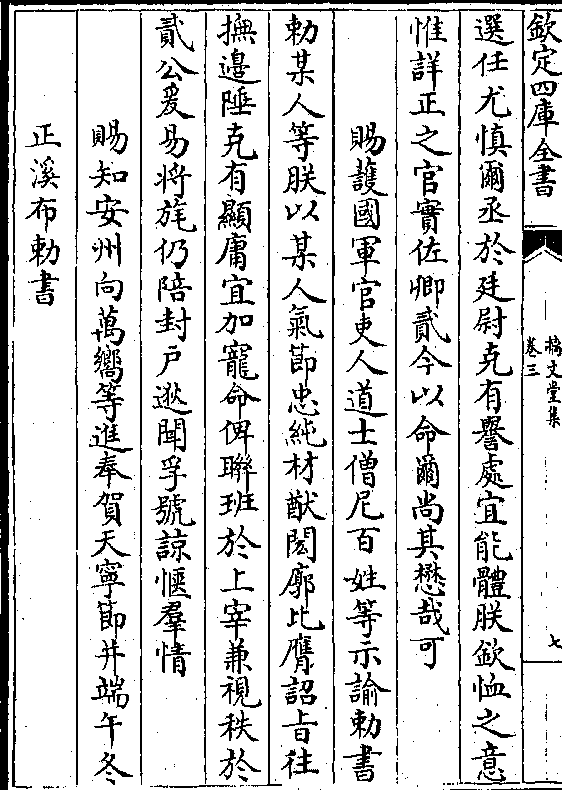 欽定四庫全書
摛文堂集
卷三
七
選任尤慎爾丞於廷尉克有譽處宜能體朕欽恤之意
惟詳正之官實佐卿貳今以命爾尚其懋哉可
賜護國軍官吏人道士僧尼百姓等示諭勅書
勅某人等朕以某人氣節忠純材猷閎廓比膺詔旨往
撫邊陲克有顯庸宜加寵命俾聯班於上宰兼視秩於
貳公爰易將旄仍陪封户逖聞孚號諒愜羣情
賜知安州向萬嚮等進奉賀天寧節并端午冬
正溪布勅書